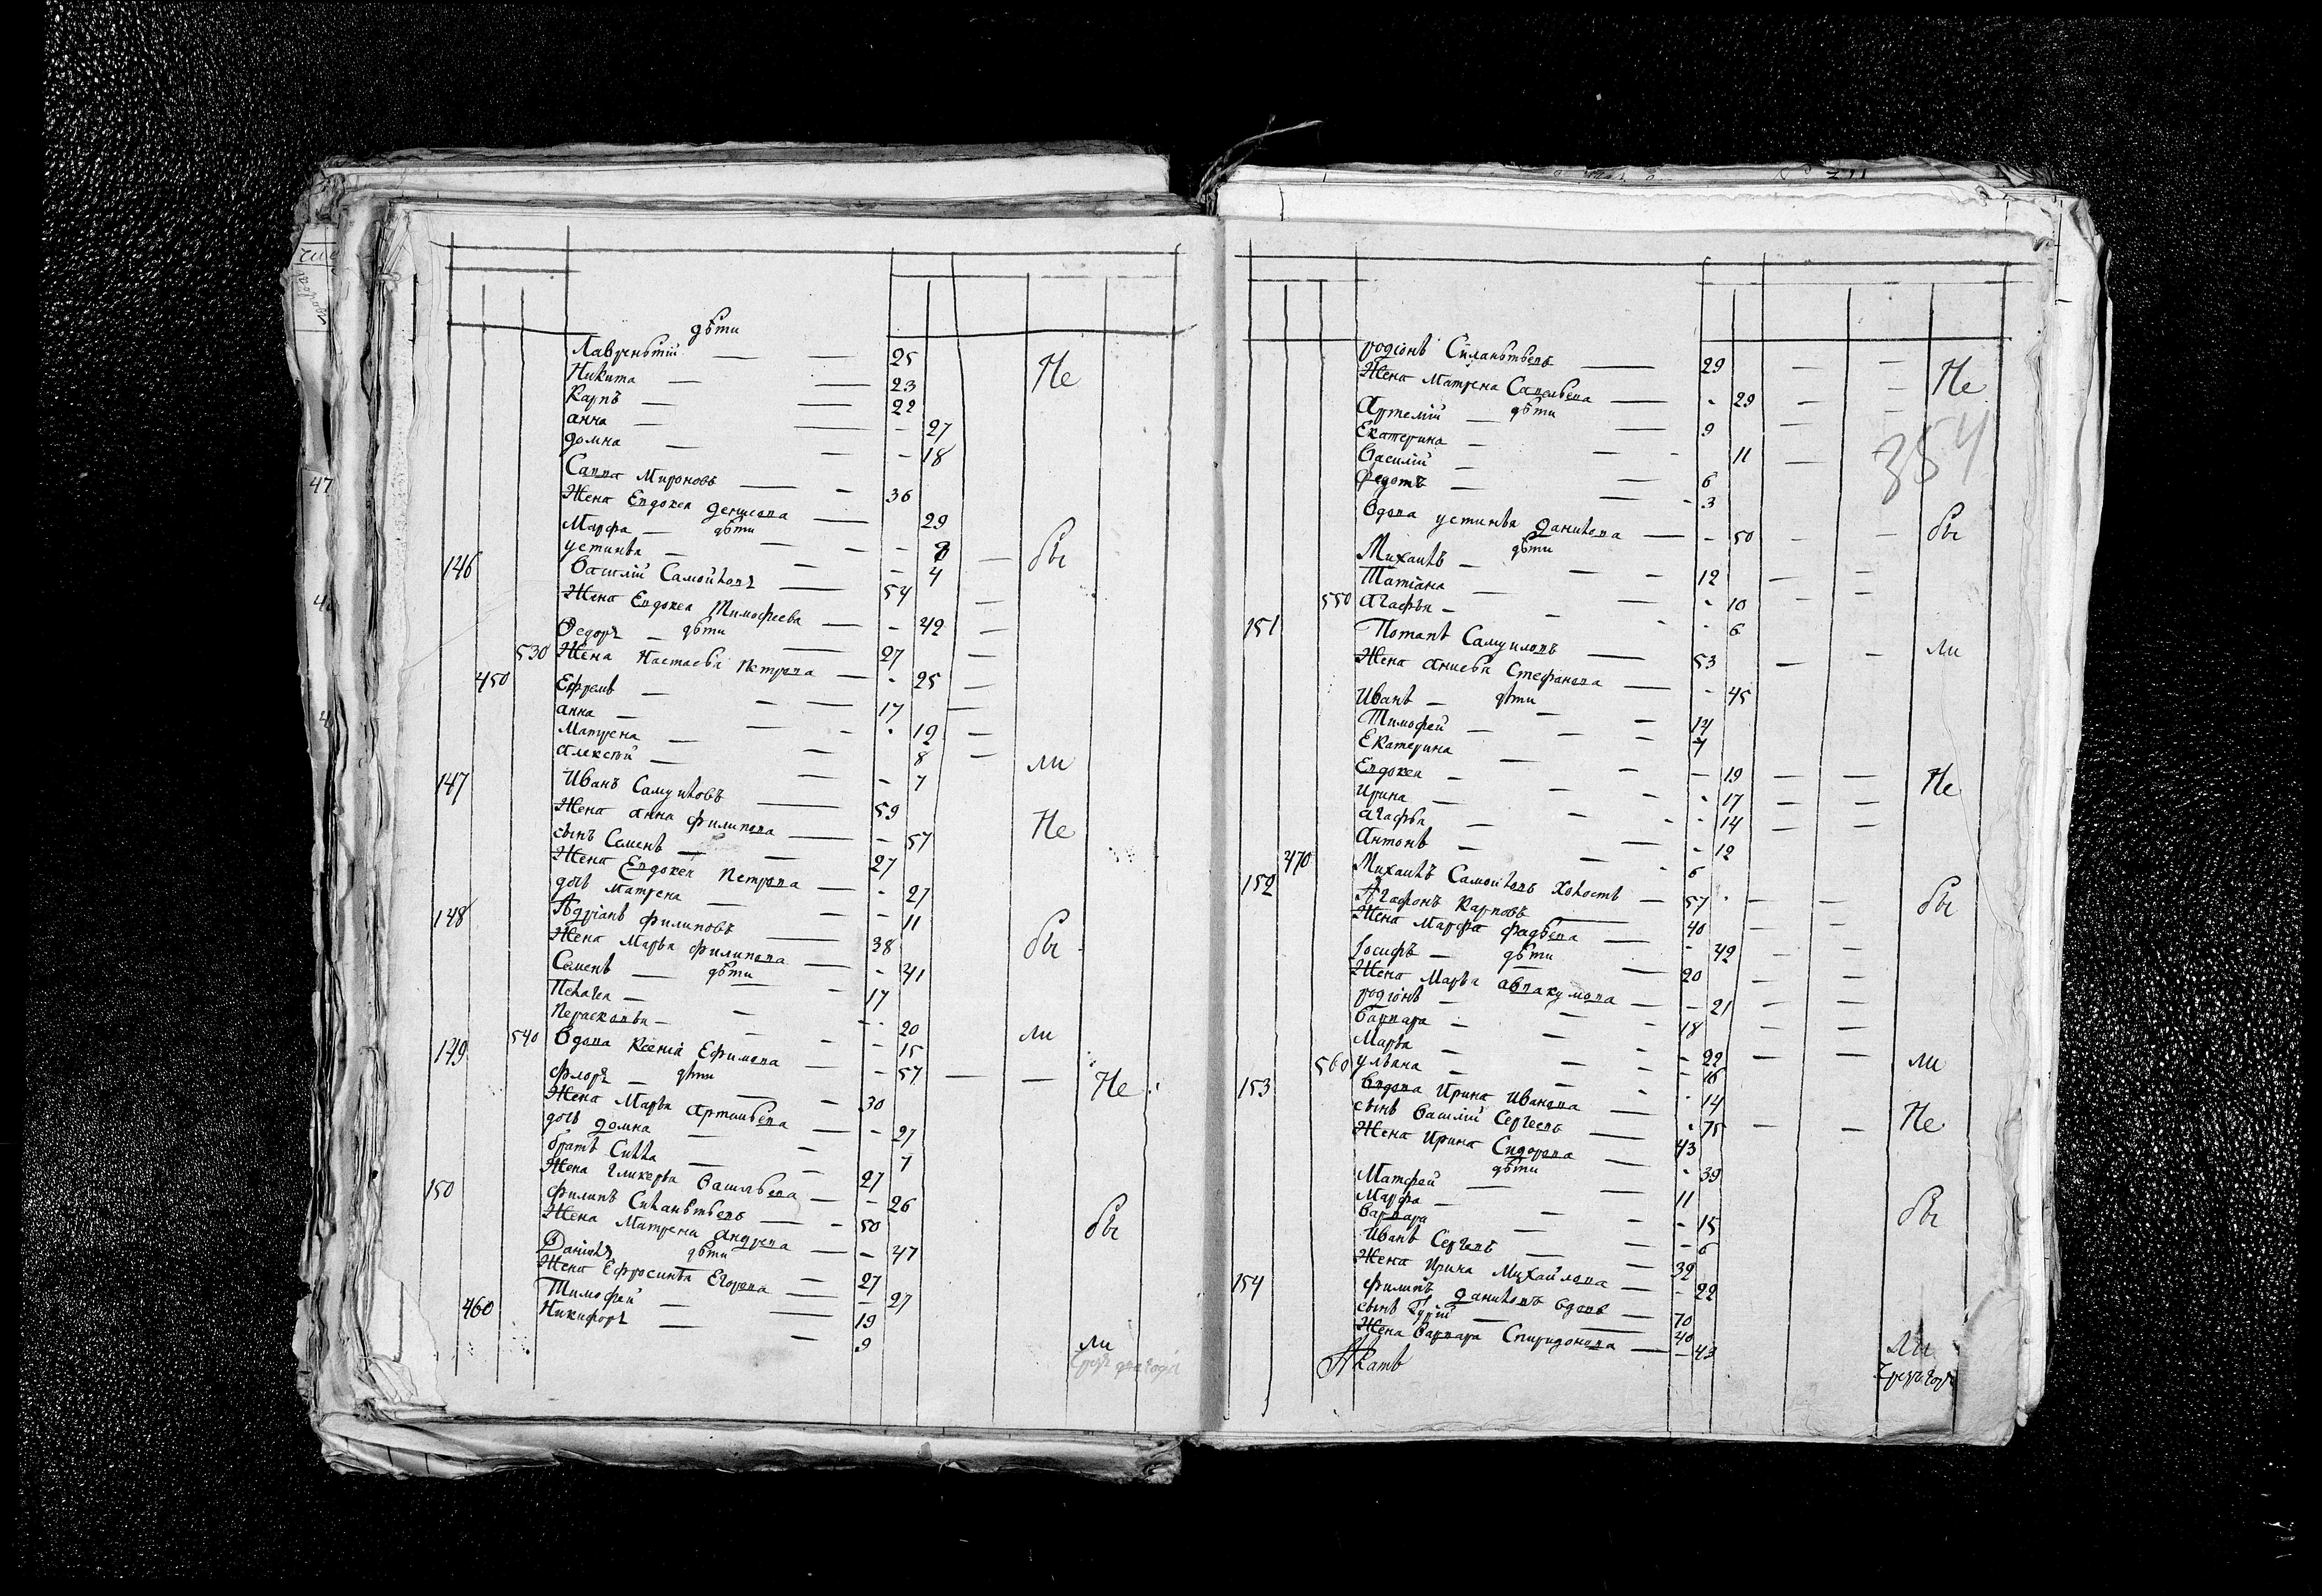 дѣти
Лаврентий — — 25
Никита — — 23
Карпъ — — 22
анна — — - 27
домна — — - 18
Не
Савва Мироновъ — - 36
Жена Евдокея Денисова — 29
дѣти
Марфа — — - - 8
устинья — — - 4
бы
146 Василий Самойловъ — 54
Жена Евдокея Тимофеева — - 42
дѣти
Федоръ — — 27
530 Жена Настасья Петрова — - 25
450 Ефремъ — — 17
анна — — - 12
Матрена — — 8
алексѣй — — - 7
ли
147 Иванъ Самуиловъ — 59
Жена анна филипова — - 57
сынъ Семенъ — — 27
Жена Евдокея Петрова — - 27
дочь Матрена — — - 11
Не
148 Адріанъ филиповъ — 38
Жена Марья филипова — - 41
дѣти
Семенъ — — 17
Пелагея — — - 20
Перасковья — — - 15
бы
149 540 Вдова Ксенія Ефимова — - 57 — —
дѣти
ли
флоръ — — 30
Жена Марья Артемьева — - 27
дочь домна — — 7
братъ Сила — — 27
Жена гликерья Васильева — - 26
Не
150 филипъ Силантьевъ — - 50
Жена Матрена Андреева — - 47
дѣти
Данило — 27
Жена Ефросинья Егорова — - 27
Тимофей — — 19
460 Никифоръ — — 9
бы
ли
родіонъ Силантьевъ — 29 — —
Жена Матрена Савельева — - 29 — —
дѣти
Артемій — — 9 —
Екатерина — — - 11 —
Василій — — 6
Федотъ — — - 3
Не
354
Вдова устинья Данилова — - 50 — —
дѣти
Михаилъ — — 12 — —
Татіана — — - 10
550 Агафья — - - 6
бы
151 Потапъ Самуиловъ — 53 — —
Жена анисья Стефанова — - 45
дѣти
Иванъ — — 14
Тимофей — — 7
Екатерина — — 19 — —
Евдокея — — - 17 — —
Ирина — — - 14 — —
Агафья — — - 12
Антонъ — - 6
ли
Не
470 Михаилъ Самойловъ холостъ — 57 — —
152 Агафонъ Карповъ — 40 — —
Жена Марфа Фадѣева — - 42 —
дѣти
Іосифъ — — 20 —
Жена Марья аввакумова — - 21 — —
родіонъ — — 18 — —
Варвара — — - 22 — —
Марья — — - 16
560 ульяна — - - 14
бы
ли
153 Вдова Ирина Иванова — - 75 — —
сынъ Василій Сергеевъ — 43
Жена Ирина Сидорова — - 39
дѣти
Матфей — — 11
Марфа — — - 15
Варвара — — - 6
Иванъ Сергеевъ — — 32
Жена Ирина Михайлова — - 22
Не
бы
154 филипъ Даниловъ вдовъ — 70
сынъ Гурій — — 40
Жена Варвара Спиридонова — - 43
ли